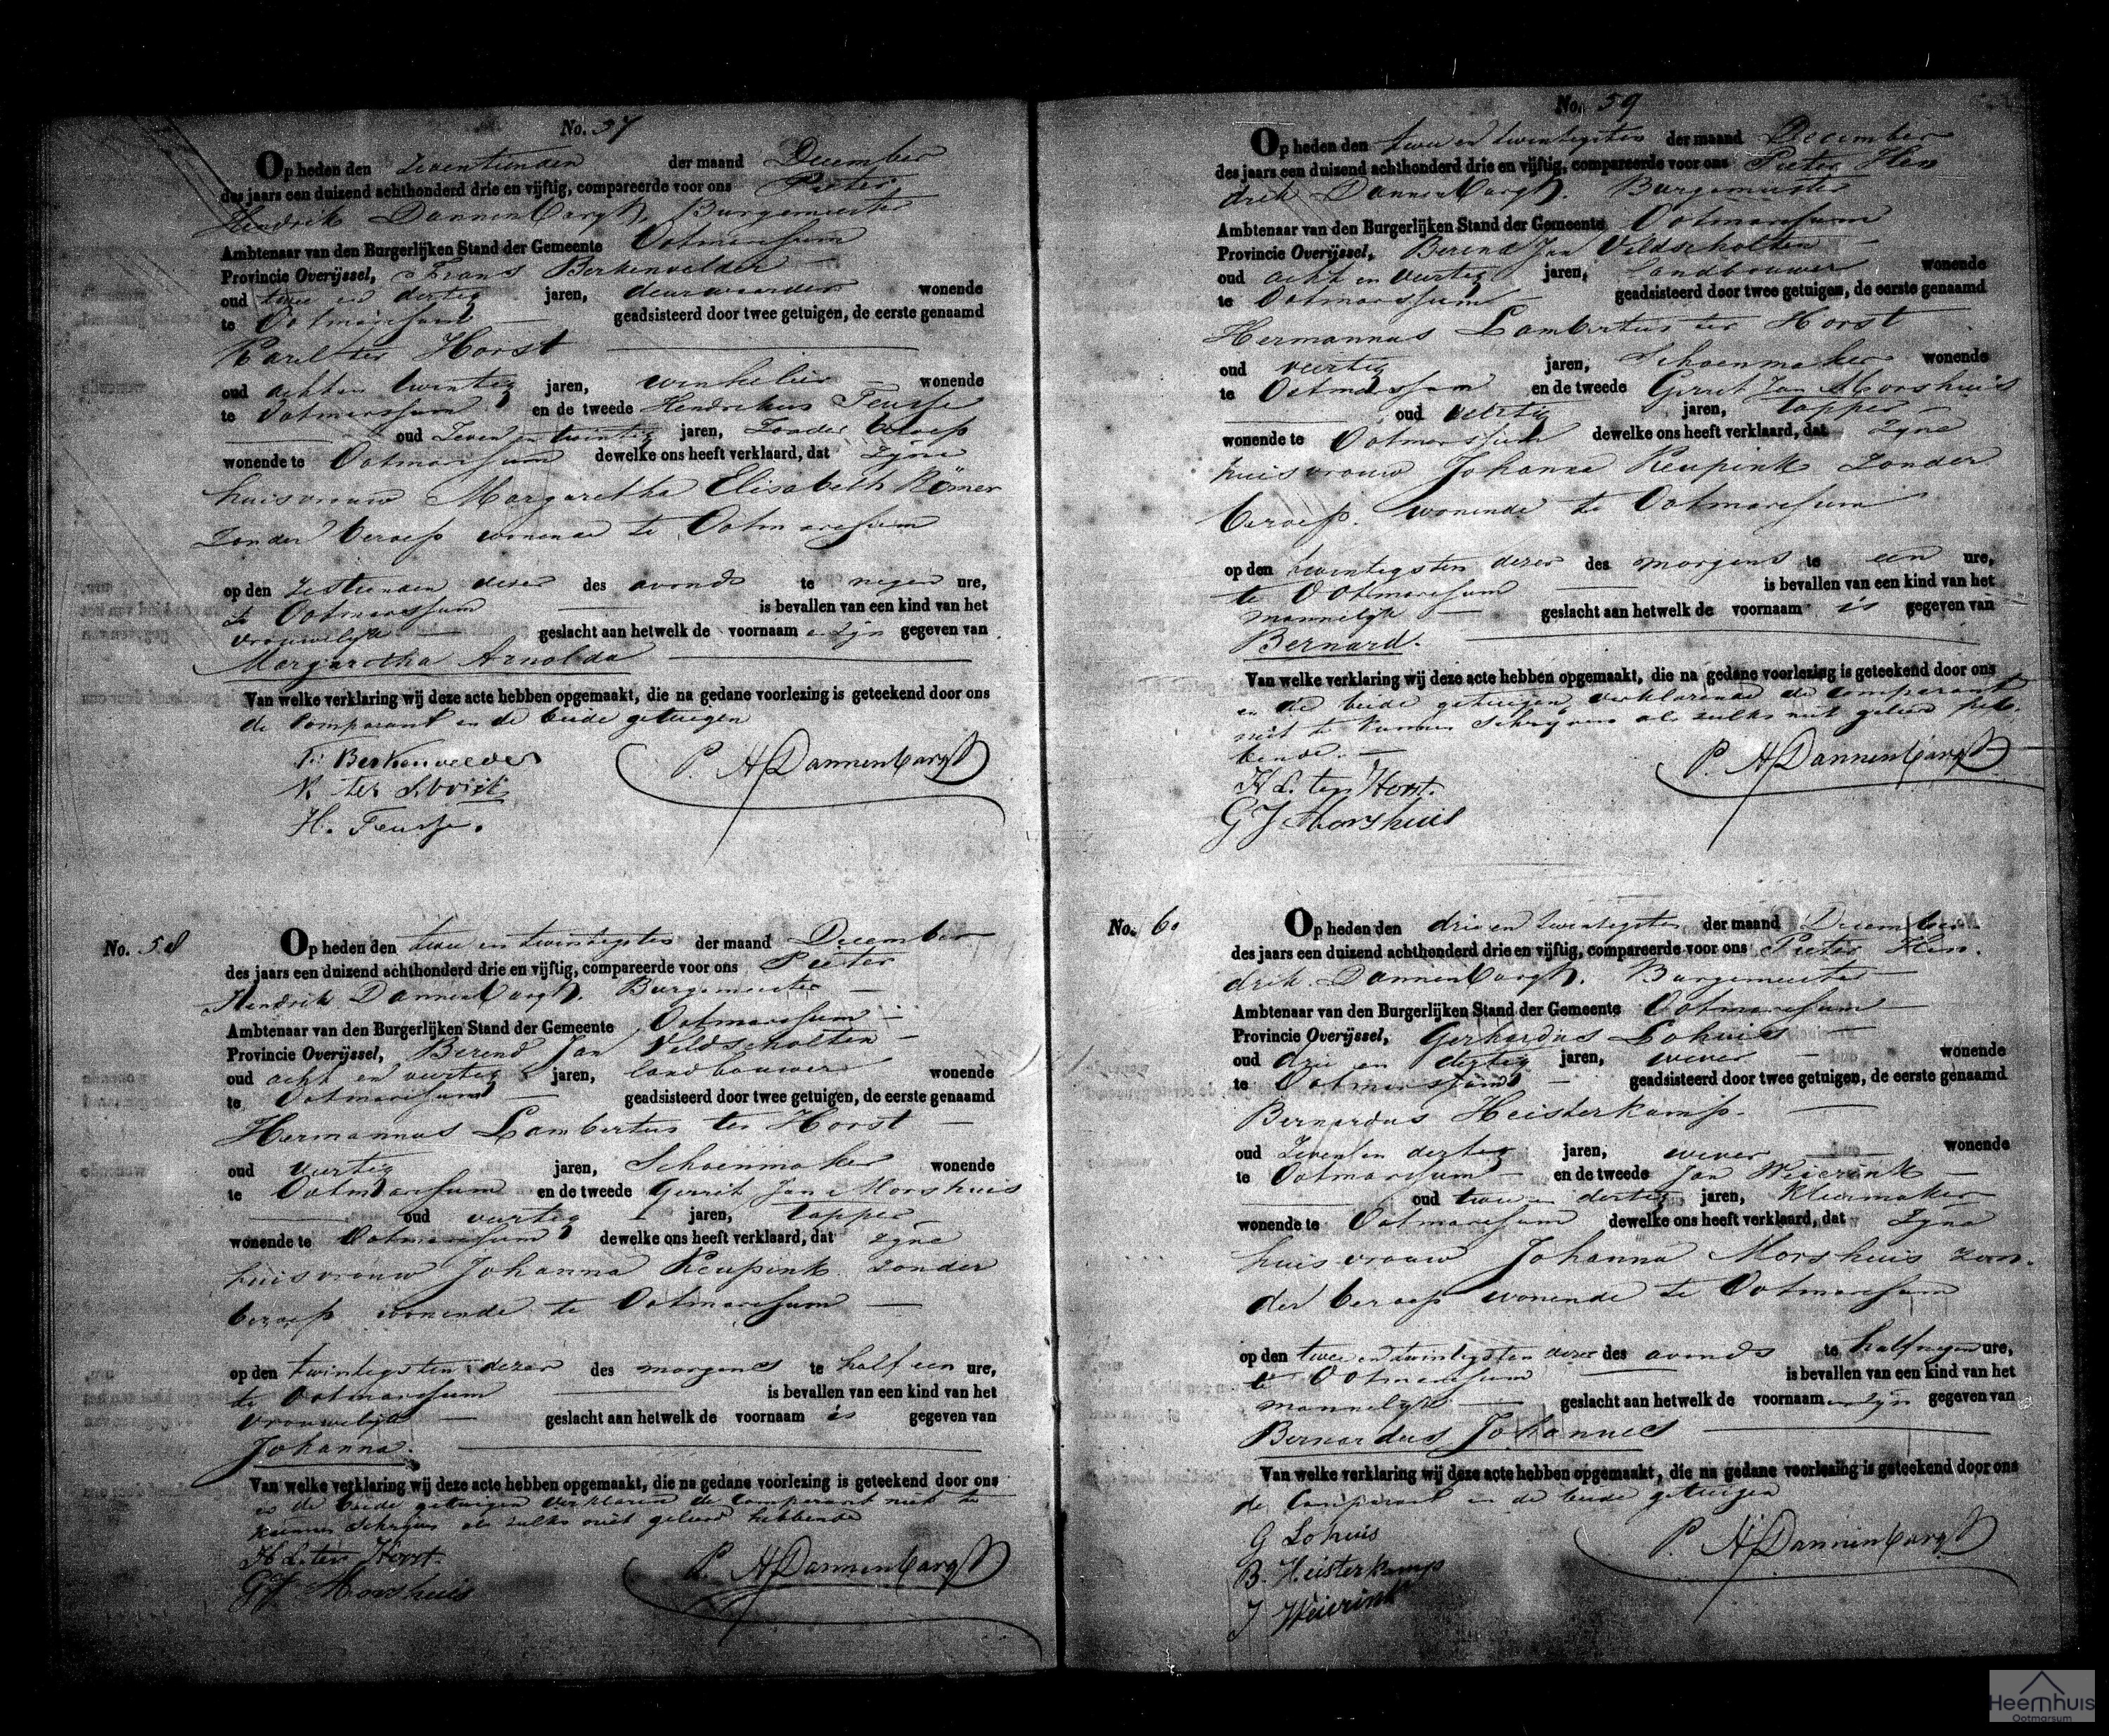 No. 57
Op heden den zeventienden der maand December
des jaars een duizend achthonderd drie en vijftig, compareerde voor ons Pieter
Hendrik Dannenbargh, Burgemeester
Ambtenaar van den Burgerlijken Stand der Gemeente Ootmarssum
Provincie Overijssel, Frans Berkenvelder
oud twee en dertig jaren, deurwaarder wonende
te Ootmarssum geadsisteerd door twee getuigen, de eerste genaamd
Karel ter Horst
oud acht en twintig jaren, winkelier wonende
te Ootmarssum en de tweede Hendrikus Feusse
oud Zeven en twintig jaren, Zonder beroep
wonende te Ootmarssum dewelke ons heeft verklaard, dat Zijne
huisvrouw Margaretha Elisabeth Römer
Zonder beroep wonende te Ootmarssum
op den zestienden dezer des avonds te negen ure,
te Ootmarssum is bevallen van een kind van het
vrouwelijk geslacht aan hetwelk de voornaamen zijn gegeven van
Margaretha Arnolda
Van welke verklaring wij deze acte hebben opgemaakt, die na gedane voorlezing is geteekend door ons
de Comparant en de beide getuigen
F. Berkenvelder
K ter Horst
P. H Dannenbargh
H. Feusse.
No. 58
Op heden den twee en twintigsten der maand December
des jaars een duizend achthonderd drie en vijftig, compareerde voor ons Pieter
Hendrik Dannenbargh. Burgemeester
Ambtenaar van den Burgerlijken Stand der Gemeente Ootmarssum
Provincie Overijssel, Berend Jan Veldscholten
oud acht en veertig jaren, landbouwer wonende
te Ootmarssum geadsisteerd door twee getuigen, de eerste genaamd
Hermannus Lambertus ter Horst
oud veertig jaren, Schoenmaker wonende
te Ootmarssum en de tweede Gerrit Jan Morshuis
oud veertig jaren, tapper
wonende te Ootmarssum dewelke ons heeft verklaard, dat zijne
huisvrouw Johanna Reupink zonder
beroep wonende te Ootmarssum
op den twintigsten dezer des morgens te half een ure,
te Ootmarssum is bevallen van een kind van het
vrouwelijk geslacht aan hetwelk de voornaam is gegeven van
Johanna.
Van welke verklaring wij deze acte hebben opgemaakt, die na gedane voorlezing is geteekend door ons
en de beide getuigen verklarend de Comparant niet te
kunnen schrijven als zulks niet geleerd hebbende
H L. ter Horst.
P. H Dannenbargh
GJ Morshuis
No. 59
Op heden den twee en twintigsten der maand December
des jaars een duizend achthonderd drie en vijftig, compareerde voor ons Pieter Hen
drik Dannenbargh. Burgemeester
Ambtenaar van den Burgerlijken Stand der Gemeente Ootmarssum
Provincie Overijssel, Berend Jan Veldscholten
oud acht en veertig jaren, landbouwer wonende
te Ootmarssum geadsisteerd door twee getuigen, de eerste genaamd
Hermannus Lambertus ter Horst
oud veertig jaren, Schoenmaker wonende
te Ootmarssum en de tweede Gerrit Jan Morshuis
oud veertig jaren, tapper
wonende te Ootmarssum dewelke ons heeft verklaard, dat Zijne
huisvrouw Johanna Reupink Zonder
beroep. wonende te Ootmarssum
op den twintigsten dezer des morgens te een ure,
te Ootmarssum is bevallen van een kind van het
mannelijk geslacht aan hetwelk de voornaam is gegeven van
Bernard.
Van welke verklaring wij deze acte hebben opgemaakt, die na gedane voorlezing is geteekend door ons
en de beide getuigen, verklarende de comparant
niet te kunnen schrijven als zulks niet geleerd heb-
bende.
P. H Dannenbargh
H L. ter Horst.
G J Morshuis
No. 60
Op heden den drie en twintigsten der maand December
des jaars een duizend achthonderd drie en vijftig, compareerde voor ons Pieter Hen.
drik. Dannenbargh. Burgemeester
Ambtenaar van den Burgerlijken Stand der Gemeente Ootmarssum
Provincie Overijssel, Gerhardus Lohuis
oud drie en dertig jaren, wever wonende
te Ootmarssum geadsisteerd door twee getuigen, de eerste genaamd
Bernardus Heisterkamp.
oud Zeven en dertig jaren, wever wonende
te Ootmarssum en de tweede Jan Weierink
oud twee en dertig jaren, Kleermaker
wonende te Ootmarssum dewelke ons heeft verklaard, dat Zijne
huisvrouw Johanna Morshuis zon.
der beroep wonende te Ootmarssum
op den twee en twintigsten dezer des avonds te half negen ure,
te Ootmarssum is bevallen van een kind van het
mannelijk geslacht aan hetwelk de voornaamen zijn gegeven van
Bernardus Johannes
Van welke verklaring wij deze acte hebben opgemaakt, die na gedane voorlezing is geteekend door ons
de Comparant en de beide getuigen
G Lohuis
P. H Dannenbargh
B. Heisterkamp
J Weierink
Heemhuis
Ootmarsum